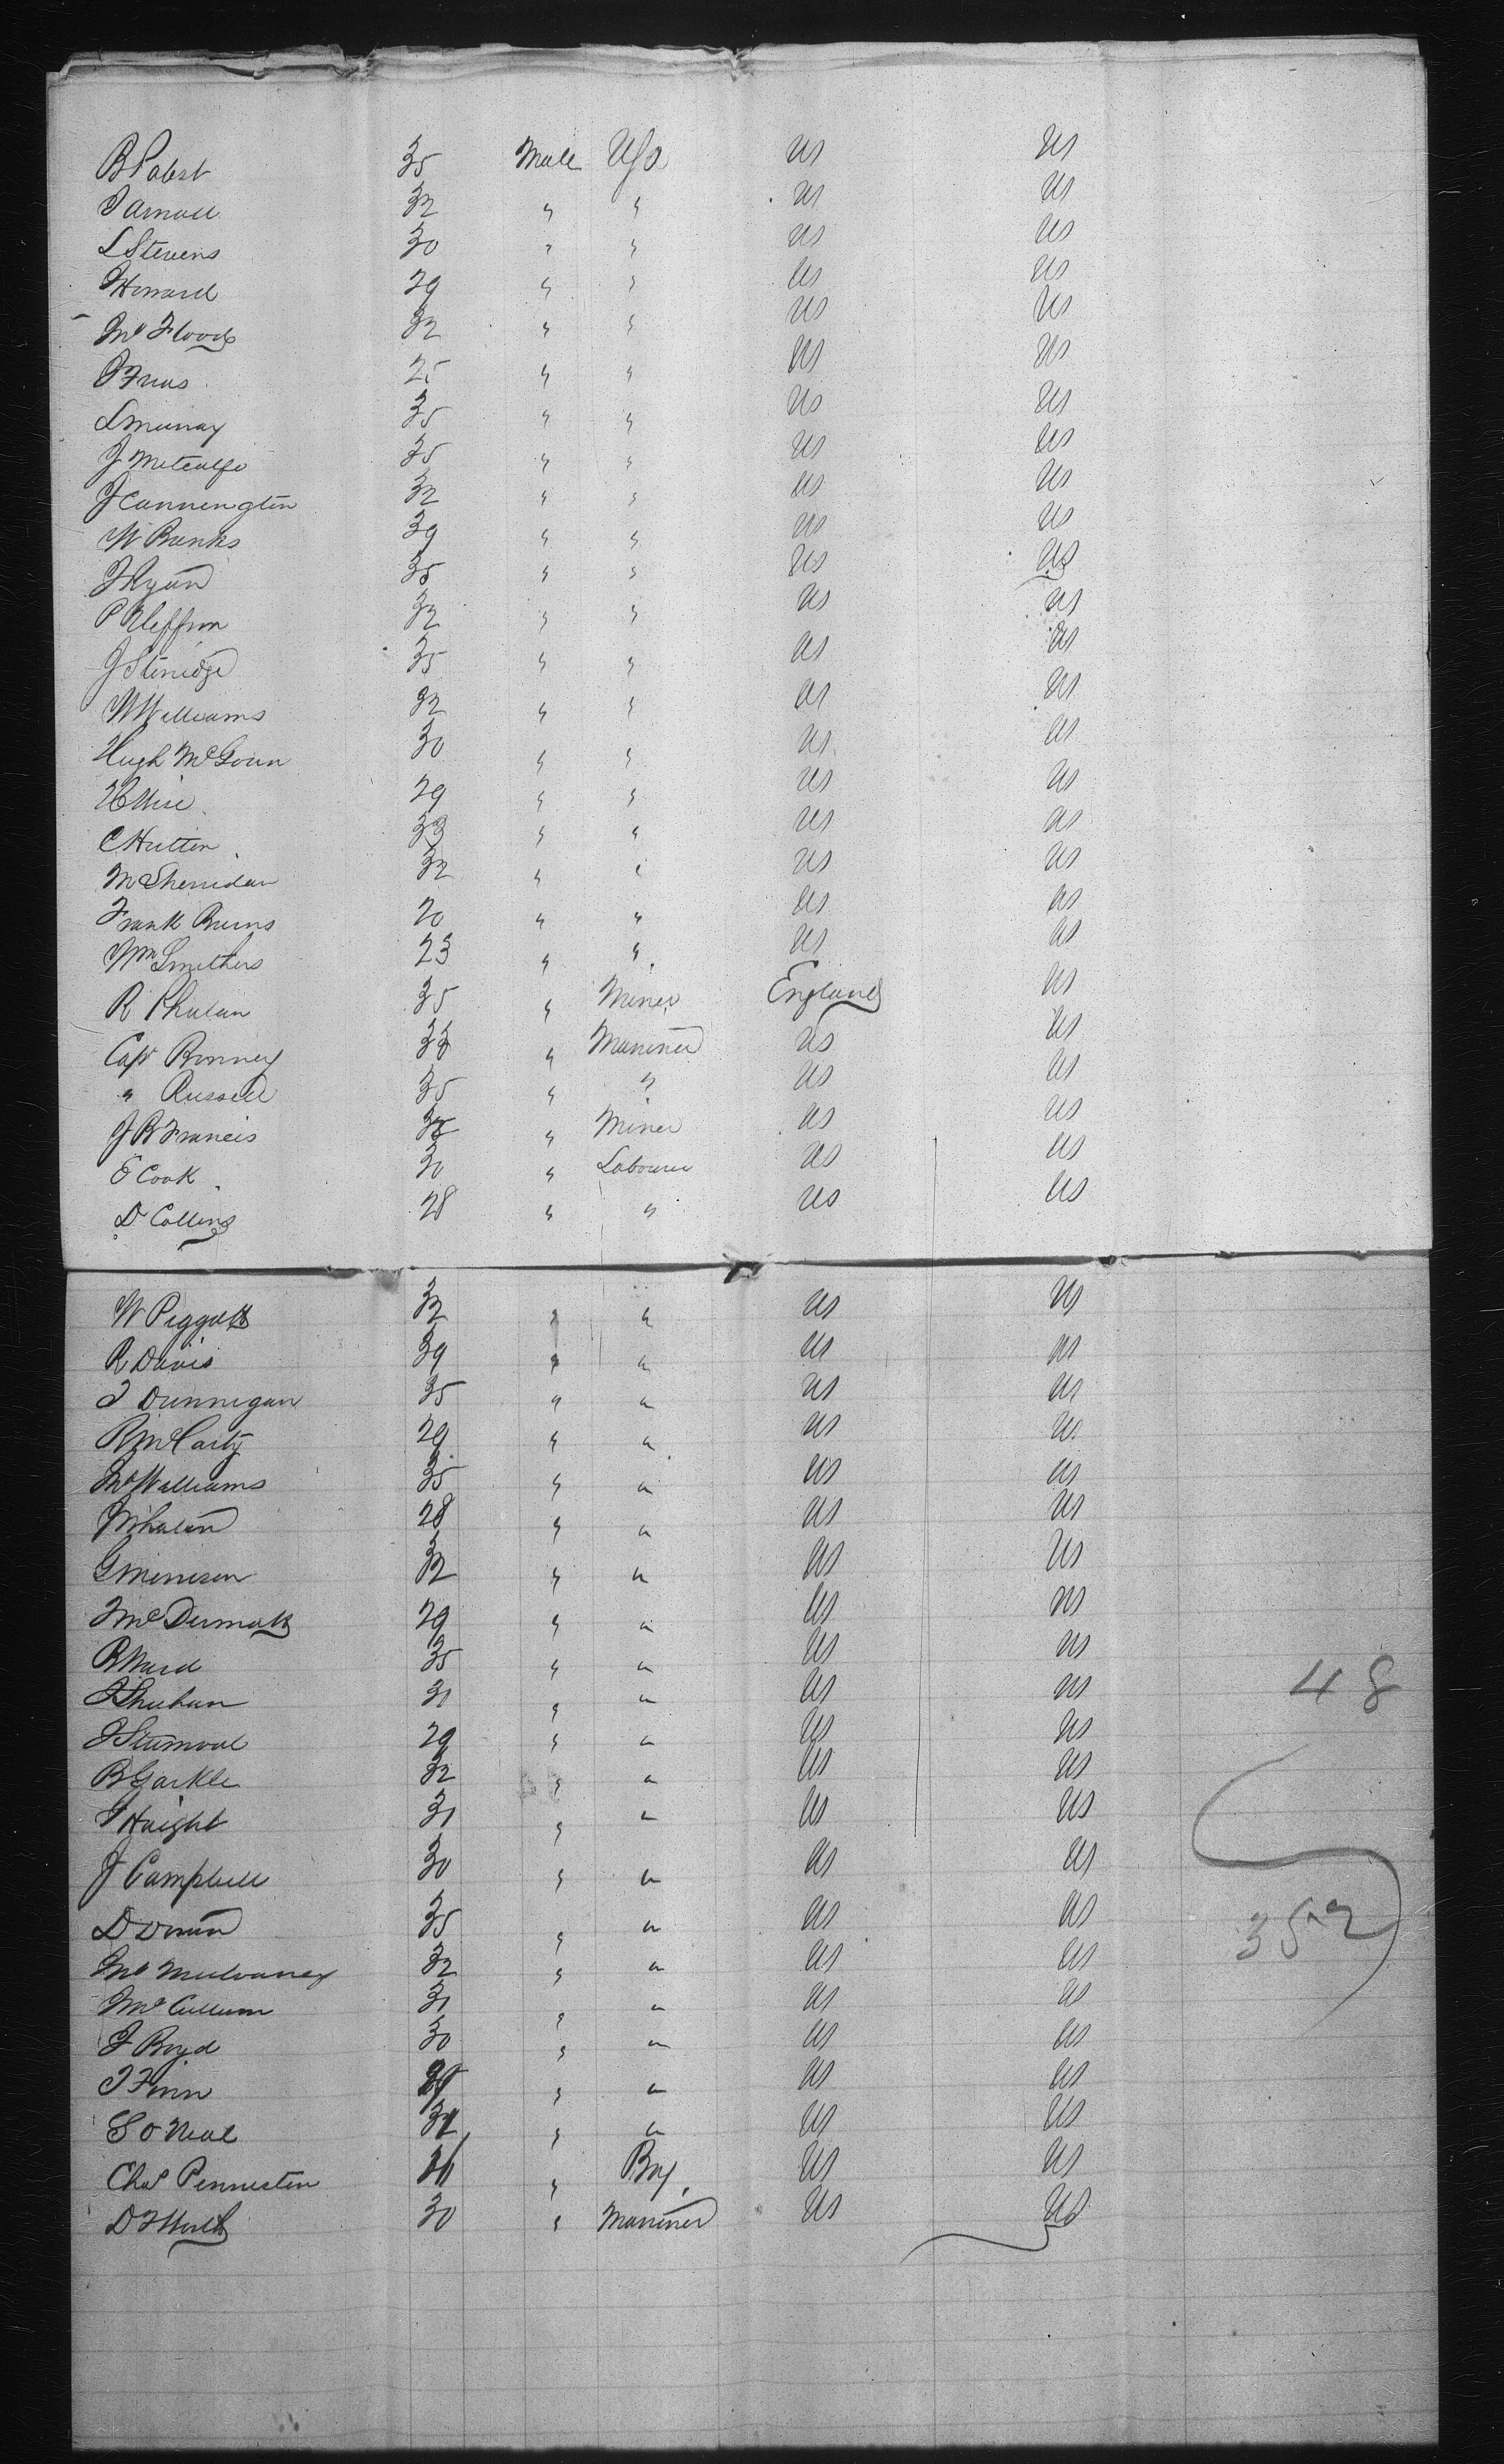 B Pabst 35 Male US US US
J Arnall 32 " " US US
L Stevens 30 " " US US
Howard 29 " " US US
Mr Floods 32 " " US US
J Frias 25 " " US US
L Murray 35 " " US US
J Metcalfe 35 " " US US
J Cannington 32 " " US US
W Banks 39 " " US US
J Ryan 35 " " US US
P Heffron 32 " " US US
J Steridge 35 " " US US
W Williams 32 " " US US
Hugh McGoun 30 " " US US
29 " " US US
C Hutton 33 " " US US
M Sheridan 32 " " US US
Frank Burns 20 " " US US
Wm Smithers 23 " " US US
R Phalan 35 " Miner England US
Capt Bonney 33 " Mariner US US
" Russell 35 " " US US
J B Francis " Miner US US
E Cook 30 " Labourer US US
D Collins 28 " " US US
W Piggott 32 " " US US
R Davis 39 " " US US
J Dunnegan 35 " " US US
R McCarty 29 " " US US
Mr Williams 35 " " US US
Whalen 28 " " US US
G Merrison 32 " " US US
J McDermott 29 " " US US
R Ward 35 " " US US
J Shuhan 31 " " US US
48
J Stumoal 29 " " US US
B Garkle 32 " " US US
J Haight 31 " " US US
J Campbell 30 " " US US
D Doran 35 " " US US
352
Mr Mulvaney 32 " " US US
McCullum 31 " " US US
J Boyd 30 " " US US
J Finn " " US US
S O Neal " " US US
Chas Penniston " Boy US US
D F Worth 30 " Mariner US US